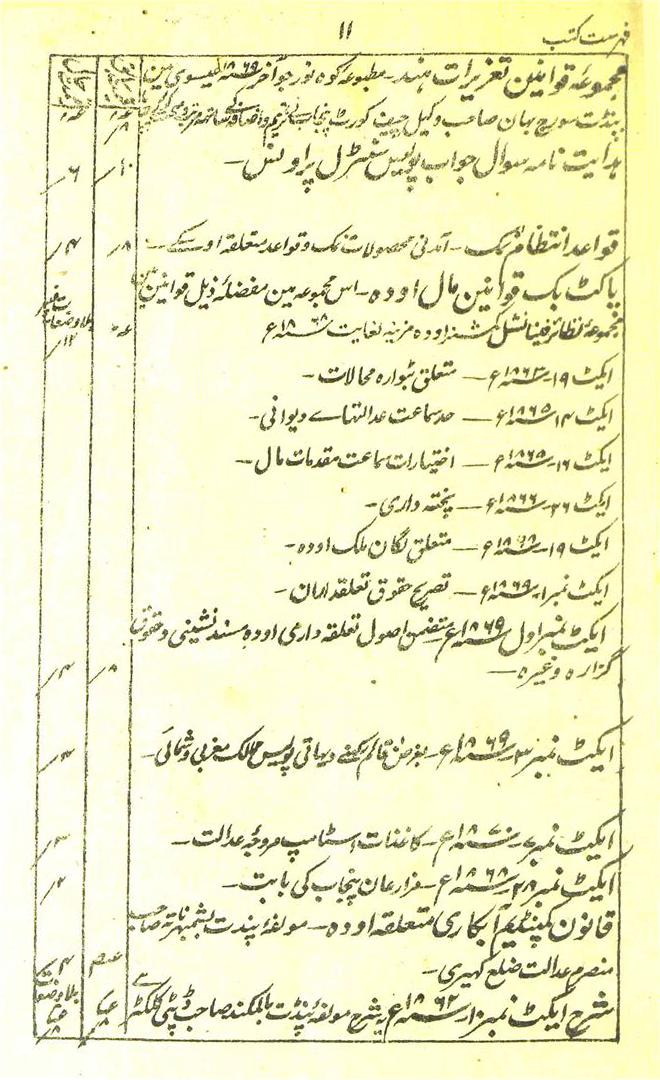 فہرست کتب
۱۱
مجموعۂ قوانین تعزیرات ہند۔ مطبوعہ کوہ نور جو آخر ۱۸۶۹؁ عیسوی مین
پنڈت سورج بہان صاحب وکیل چیف کورٹ پنجاب نے ترمیم و اضافہ کے ساتھ
ہدایت نامہ سوال جواب پولیس سنٹرل پراونس۔
۱۰/ ۶/
قواعد انتظام نمک۔ آمدنی محصولات نمک و قواعد متعلقہ اوسکے۔
۸/ ۴/
پاکٹ بک قوانین مال اودہ۔ اس مجموعہ مین مفصلۂ ذیل قوانین ہین
مجموعۂ نظائر فینانشل کمشنر اودہ مزینہ لغایت ۱۸۶۸؁ع
۱۲/
ایکٹ ۱۹۔ ۱۸۶۳؁ع۔ متعلق بٹوارہ محالات۔
ایکٹ ۱۴۔ ۱۸۶۵؁ع۔ حد سماعت عدالتہاے دیوانی۔
ایکٹ ۱۶۔ ۱۸۶۵؁ع۔ اختیارات سماعت مقدمات مال۔
ایکٹ ۲۶۔ ۱۸۶۶؁ع۔ پختہ داری۔
ایکٹ ۱۹۔ ۱۸۶۸؁ع۔ متعلق لگان ملک اودہ۔
ایکٹ نمبر ۱۔ ۱۸۶۹؁ع۔ تصریح حقوق تعلقداران۔
ایکٹ نمبر اول ۱۸۶۹؁ع۔ متضمن اصول تعلقہ داری اودہ مسند نشینی و حقوق
گزارہ وغیرہ۔
۸/ ۴/
ایکٹ نمبر ۳۔ ۱۸۶۹؁ع۔ بغرض قائم رکھنے دیہاتی پولیس ممالک مغربی و شمالی۔
۴/
ایکٹ نمبر ۷۔ ۱۸۷۰؁ع۔ کاغذات اسٹامپ مروجۂ عدالت۔
۳/
ایکٹ نمبر ۲۸۔ ۱۸۶۸؁ع۔ مزارعان پنجاب کی بابت۔
۲/
قانون کمپنڈیم آبکاری متعلقہ اودہ۔ مولفۂ پنڈت بشمبہر ناتہ صاحب
منصرم عدالت ضلع کہیری۔
۴/
شرح ایکٹ نمبر ۱۰۔ ۱۸۶۲؁ع یہ شرح مولفۂ پنڈت بالمکند صاحب ڈپٹی کلکٹر